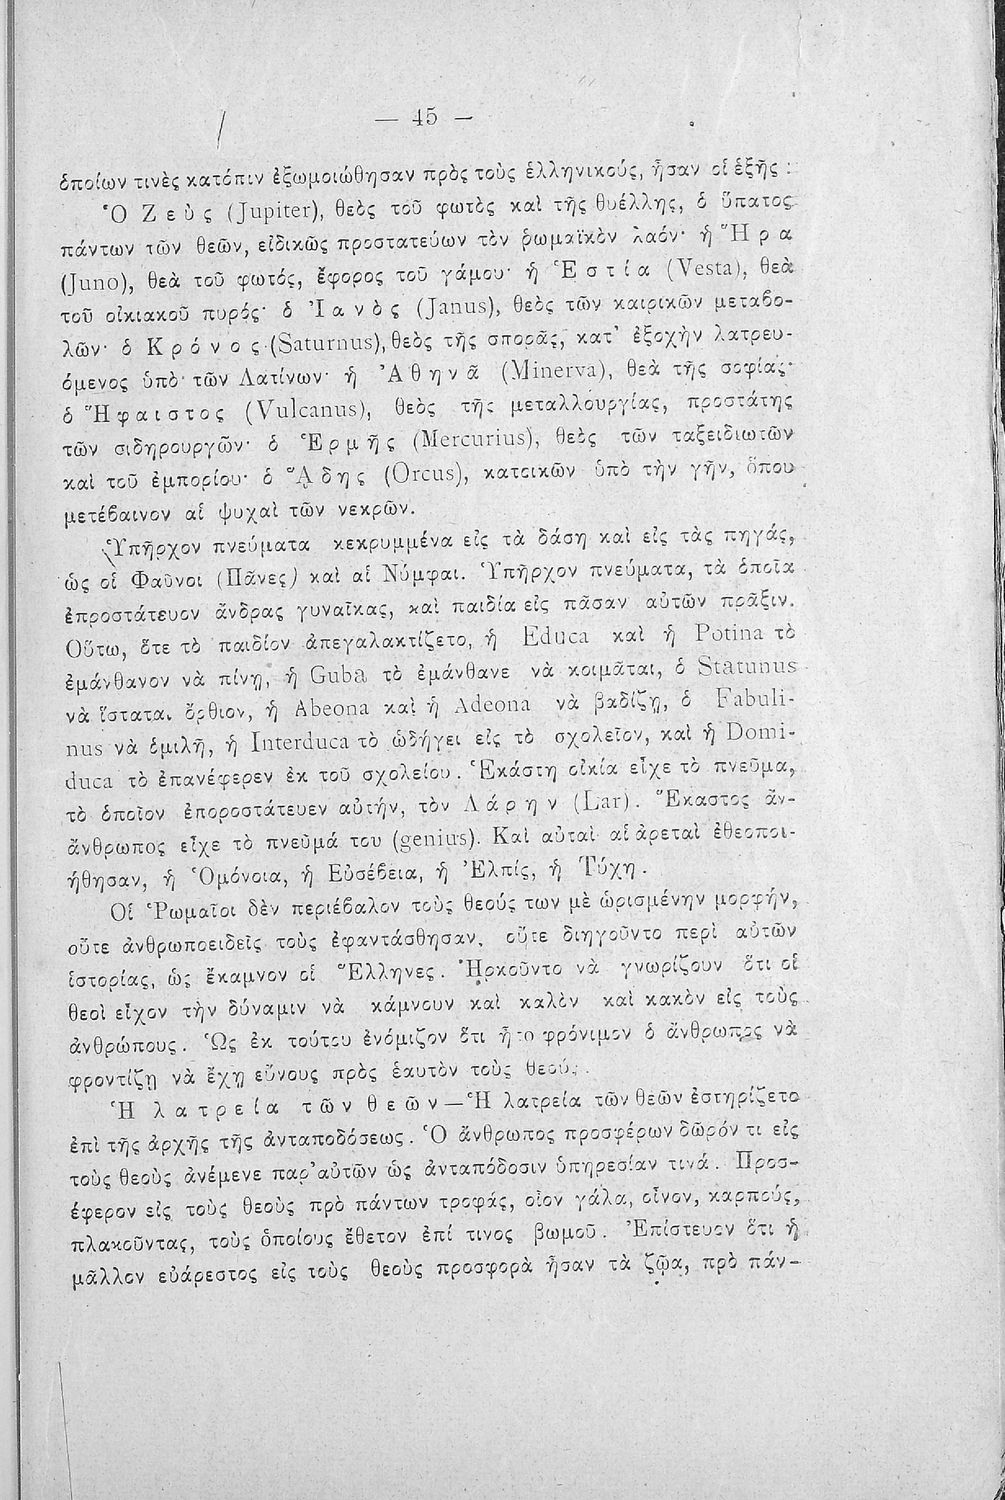 — 45 —
ὁποίων τινὲς κατόπιν ἐξωμοιώθησαν πρὸς τοὺς ἑλληνικούς, ἦσαν οἱ ἑξῆς :
Ὁ Ζεὺς (Jupiter), θεὸς τοῦ φωτὸς καὶ τῆς θυέλλης, ὁ ὕπατος
πάντων τῶν θεῶν, εἰδικῶς προστατεύων τὸν ῥωμαϊκὸν λαόν· ἡ Ἥρα
(Juno), θεὰ τοῦ φωτός, ἔφορος τοῦ γάμου· ἡ Ἑστία (Vesta), θεὰ
τοῦ οἰκιακοῦ πυρός· ὁ Ἰανὸς (Janus), θεὸς τῶν καιρικῶν μεταβο-
λῶν· ὁ Κρόνος (Saturnus), θεὸς τῆς σπορᾶς, κατ' ἐξοχὴν λατρευ-
όμενος ὑπὸ τῶν Λατίνων· ἡ Ἀθηνᾶ (Minerva), θεὰ τῆς σοφίας·
ὁ Ἥφαιστος (Vulcanus), θεὸς τῆς μεταλλουργίας, προστάτης
τῶν σιδηρουργῶν· ὁ Ἑρμῆς (Mercurius), θεὸς τῶν ταξειδιωτῶν
καὶ τοῦ ἐμπορίου· ὁ ᾍδης (Orcus), κατοικῶν ὑπὸ τὴν γῆν, ὅπου
μετέβαινον αἱ ψυχαὶ τῶν νεκρῶν.
Ὑπῆρχον πνεύματα κεκρυμμένα εἰς τὰ δάση καὶ εἰς τὰς πηγάς,
ὡς οἱ Φαῦνοι (Πᾶνες) καὶ αἱ Νύμφαι. Ὑπῆρχον πνεύματα, τὰ ὁποῖα
ἐπροστάτευον ἄνδρας γυναῖκας, καὶ παιδία εἰς πᾶσαν αὐτῶν πρᾶξιν.
Οὕτω, ὅτε τὸ παιδίον ἀπεγαλακτίζετο, ἡ Educa καὶ ἡ Potina τὸ
ἐμάνθανον νὰ πίνῃ, ἡ Guba τὸ ἐμάνθανε νὰ κοιμᾶται, ὁ Statunus
νὰ ἵσταται ὄρθιον, ἡ Abeona καὶ ἡ Adeona νὰ βαδίζῃ, ὁ Fabuli-
nus νὰ ὁμιλῇ, ἡ Interduca τὸ ὡδήγει εἰς τὸ σχολεῖον, καὶ ἡ Domi-
duca τὸ ἐπανέφερεν ἐκ τοῦ σχολείου. Ἑκάστη οἰκία εἶχε τὸ πνεῦμα,
τὸ ὁποῖον ἐποροστάτευεν αὐτήν, τὸν Λάρην (Lar). Ἕκαστος ἄν-
ἄνθρωπος εἶχε τὸ πνεῦμά του (genius). Καὶ αὐταὶ αἱ ἀρεταὶ ἐθεοποι-
ήθησαν, ἡ Ὁμόνοια, ἡ Εὐσέβεια, ἡ Ἐλπίς, ἡ Τύχη.
Οἱ Ῥωμαῖοι δὲν περιέβαλον τοὺς θεούς των μὲ ὡρισμένην μορφήν,
οὔτε ἀνθρωποειδεῖς τοὺς ἐφαντάσθησαν, οὔτε διηγοῦντο περὶ αὐτῶν
ἱστορίας, ὡς ἔκαμνον οἱ Ἕλληνες. Ἠρκοῦντο νὰ γνωρίζουν ὅτι οἱ
θεοὶ εἶχον τὴν δύναμιν νὰ κάμνουν καὶ καλὸν καὶ κακὸν εἰς τοὺς
ἀνθρώπους. Ὡς ἐκ τούτου ἐνόμιζον ὅτι ἦτο φρόνιμον ὁ ἄνθρωπος νὰ
φροντίζῃ νὰ ἔχῃ εὔνους πρὸς ἑαυτὸν τοὺς θεούς.
Ἡ λατρεία τῶν θεῶν—Ἡ λατρεία τῶν θεῶν ἐστηρίζετο
ἐπὶ τῆς ἀρχῆς τῆς ἀνταποδόσεως. Ὁ ἄνθρωπος προσφέρων δῶρόν τι εἰς
τοὺς θεοὺς ἀνέμενε παρ' αὐτῶν ὡς ἀνταπόδοσιν ὑπηρεσίαν τινά. Προσ-
έφερον εἰς τοὺς θεοὺς πρὸ πάντων τροφάς, οἷον γάλα, οἶνον, καρπούς,
πλακοῦντας, τοὺς ὁποίους ἔθετον ἐπί τινος βωμοῦ. Ἐπίστευον ὅτι ἡ
μᾶλλον εὐάρεστος εἰς τοὺς θεοὺς προσφορὰ ἦσαν τὰ ζῷα, πρὸ πάν-